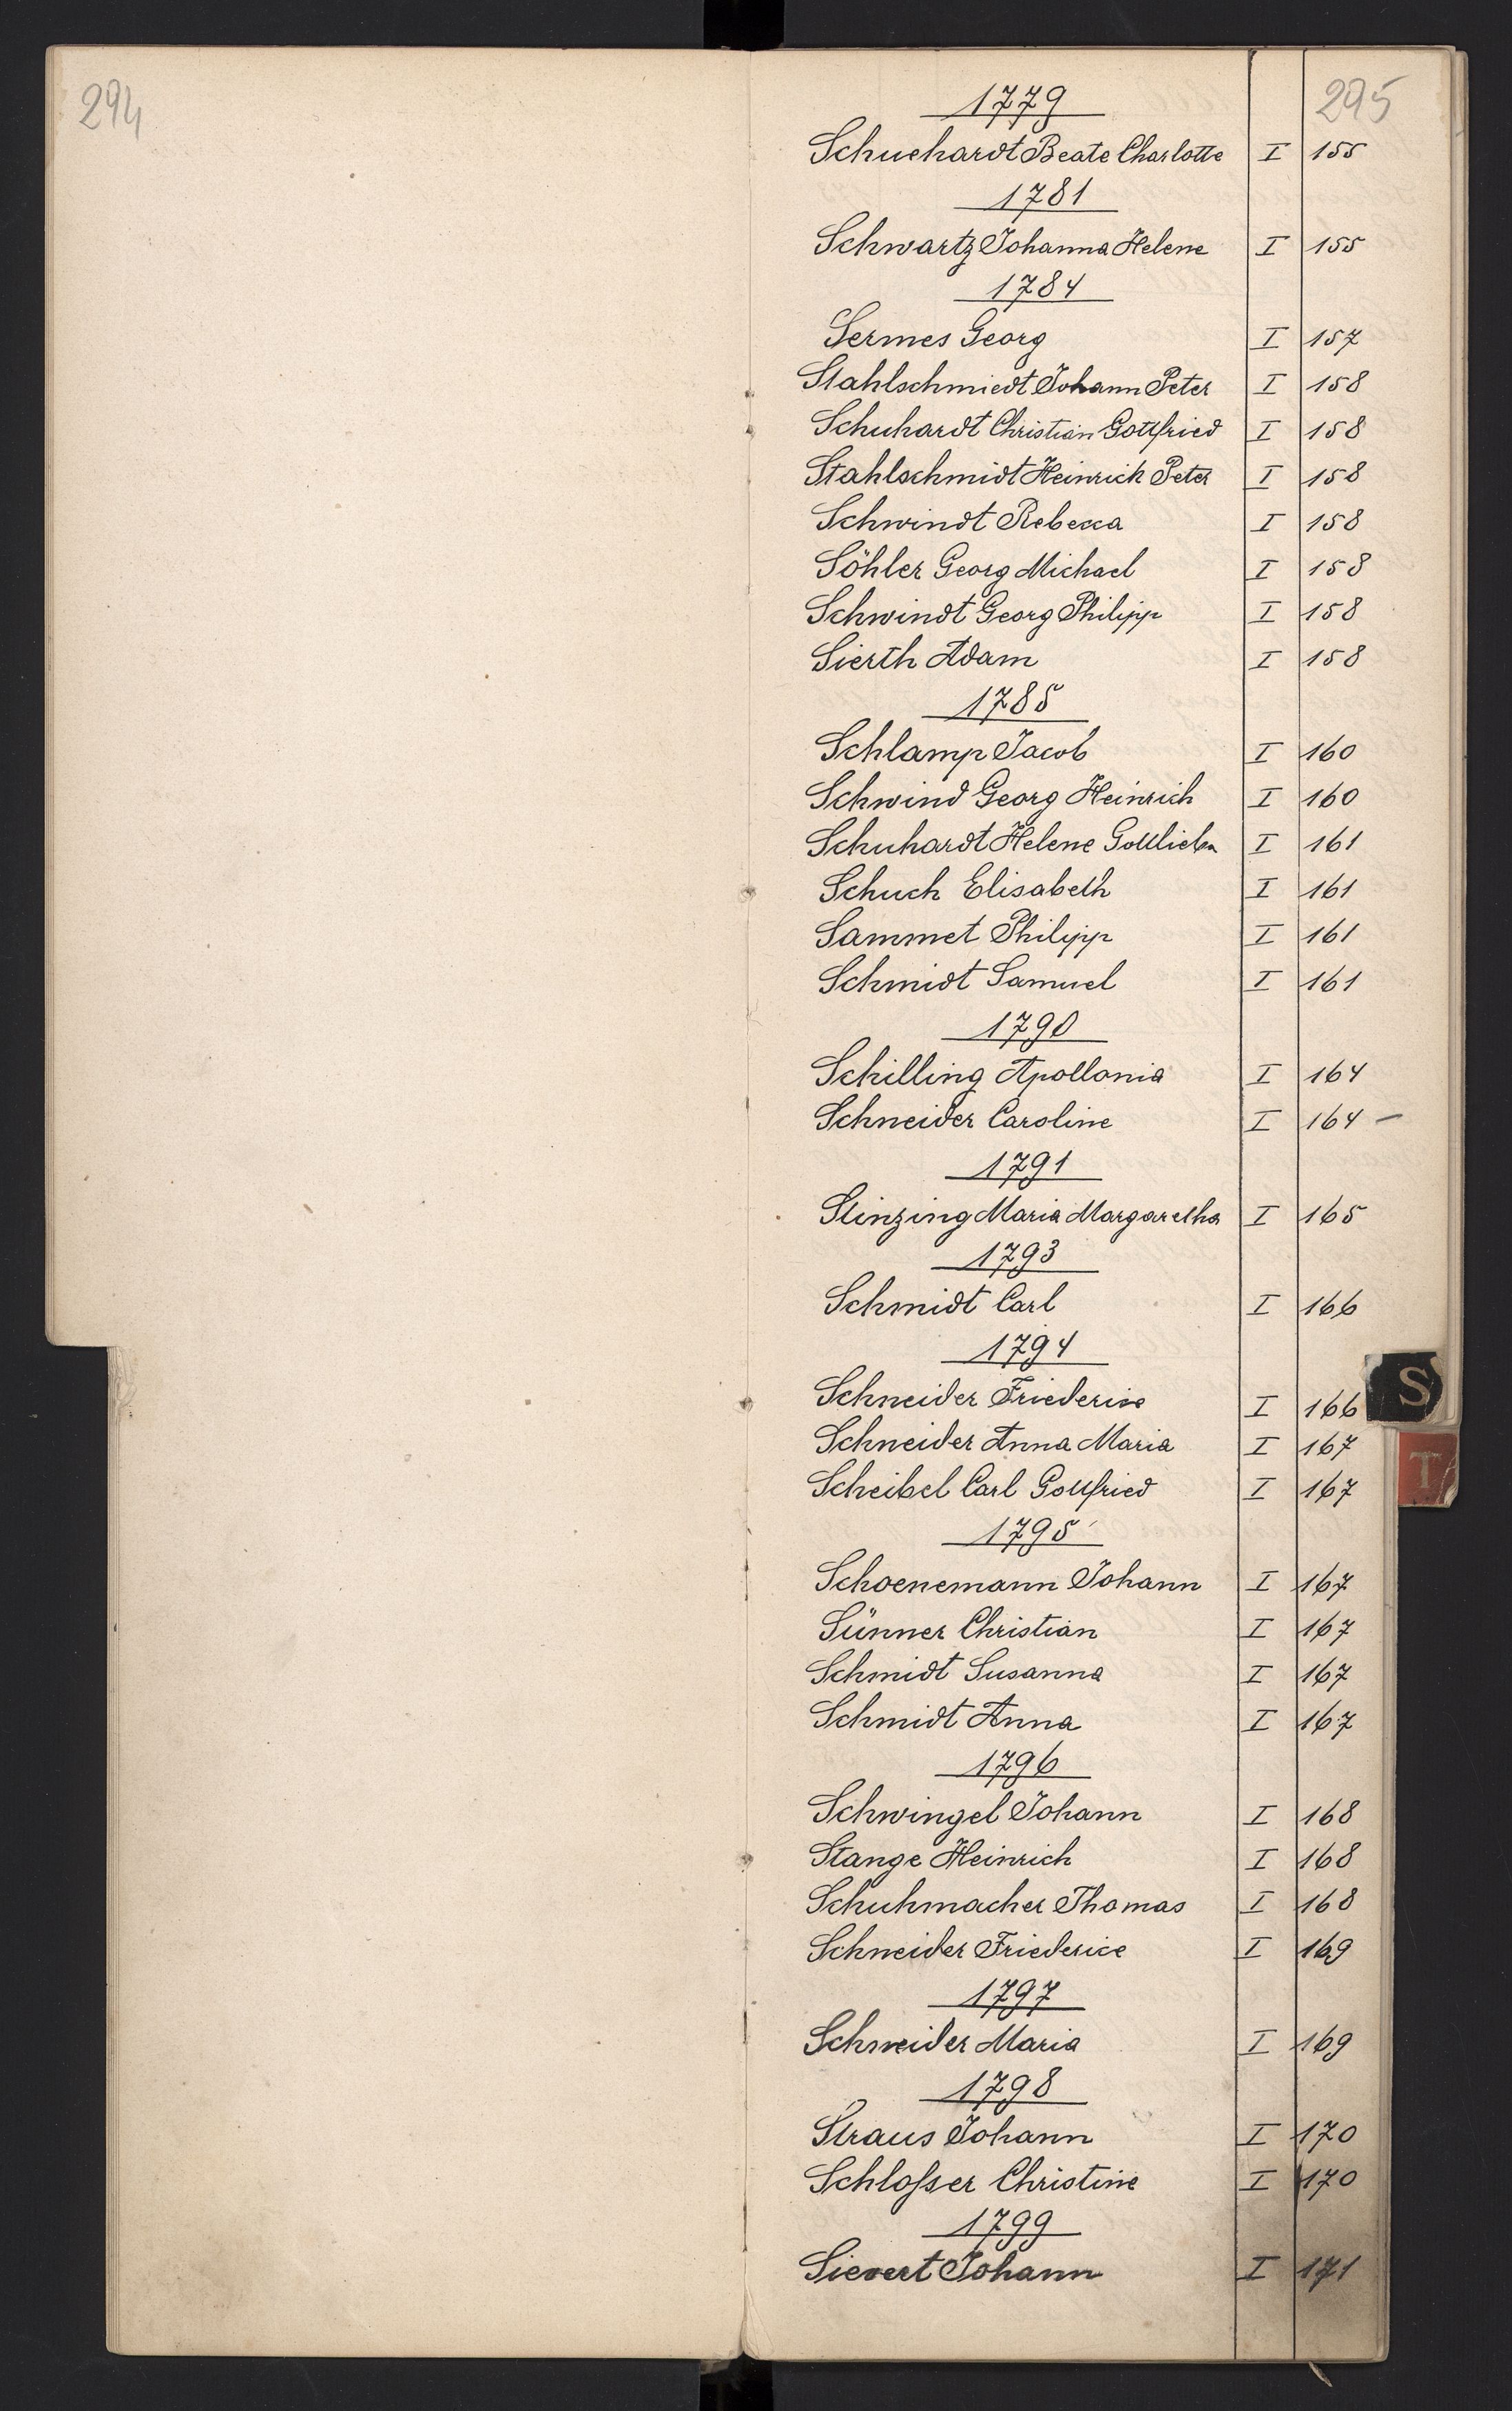 294
295
1779
Schuchardt Beate Charlotte I 155
1781
Schwartz Johanna Helene I 155
1784
Sermes Georg I 157
Stahlschmiedt Johann Peter I 158
Schuhardt Christian Gottfried I 158
Stahlschmidt Heinrich Peter I 158
Schwindt Rebecca I 158
Söhler Georg Michael I 158
Schwindt Georg Philipp I 158
Sierth Adam I 158
1785
Schlamp Jacob I 160
Schwind Georg Heinrich I 160
Schuhardt Helene Gottlieba I 161
Schuch Elisabeth I 161
Sammet Philipp I 161
Schmidt Samuel I 161
1790
Schilling Apollonia I 164
Schneider Caroline I 164 –
1791
Stinzing Maria Margaretha I 165
1793
Schmidt Carl I 166
1794
Schneider Friederice I 166
Schneider Anna Maria I 167
Scheibel Carl Gottfried I 167
1795
Schoenemann Johann I 167
Sünner Christian I 167
Schmidt Susanna I 167
Schmidt Anna I 167
1796
Schwingel Johann I 168
Stange Heinrich I 168
Schuhmacher Thomas I 168
Schneider Friederice I 169
1797
Schneider Maria I 169
1798
Straus Johann I 170
Schloſser Christine I 170
1799
Sievert Johann I 171
S
T